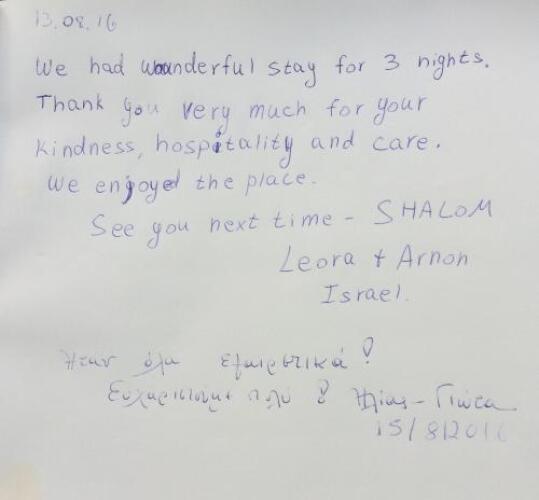 13.08.16
We had wounderful stay for 3 nights.
Thank you very much for your
kindness, hospitality and care.
We enjoyed the place.
See you next time - SHALOM
Leora + Arnon
Israel.
Ήταν όλα εξαιρετικά!
Ευχαριστούμε πολύ! Ηλίας - Γιώτα
15/8/2016